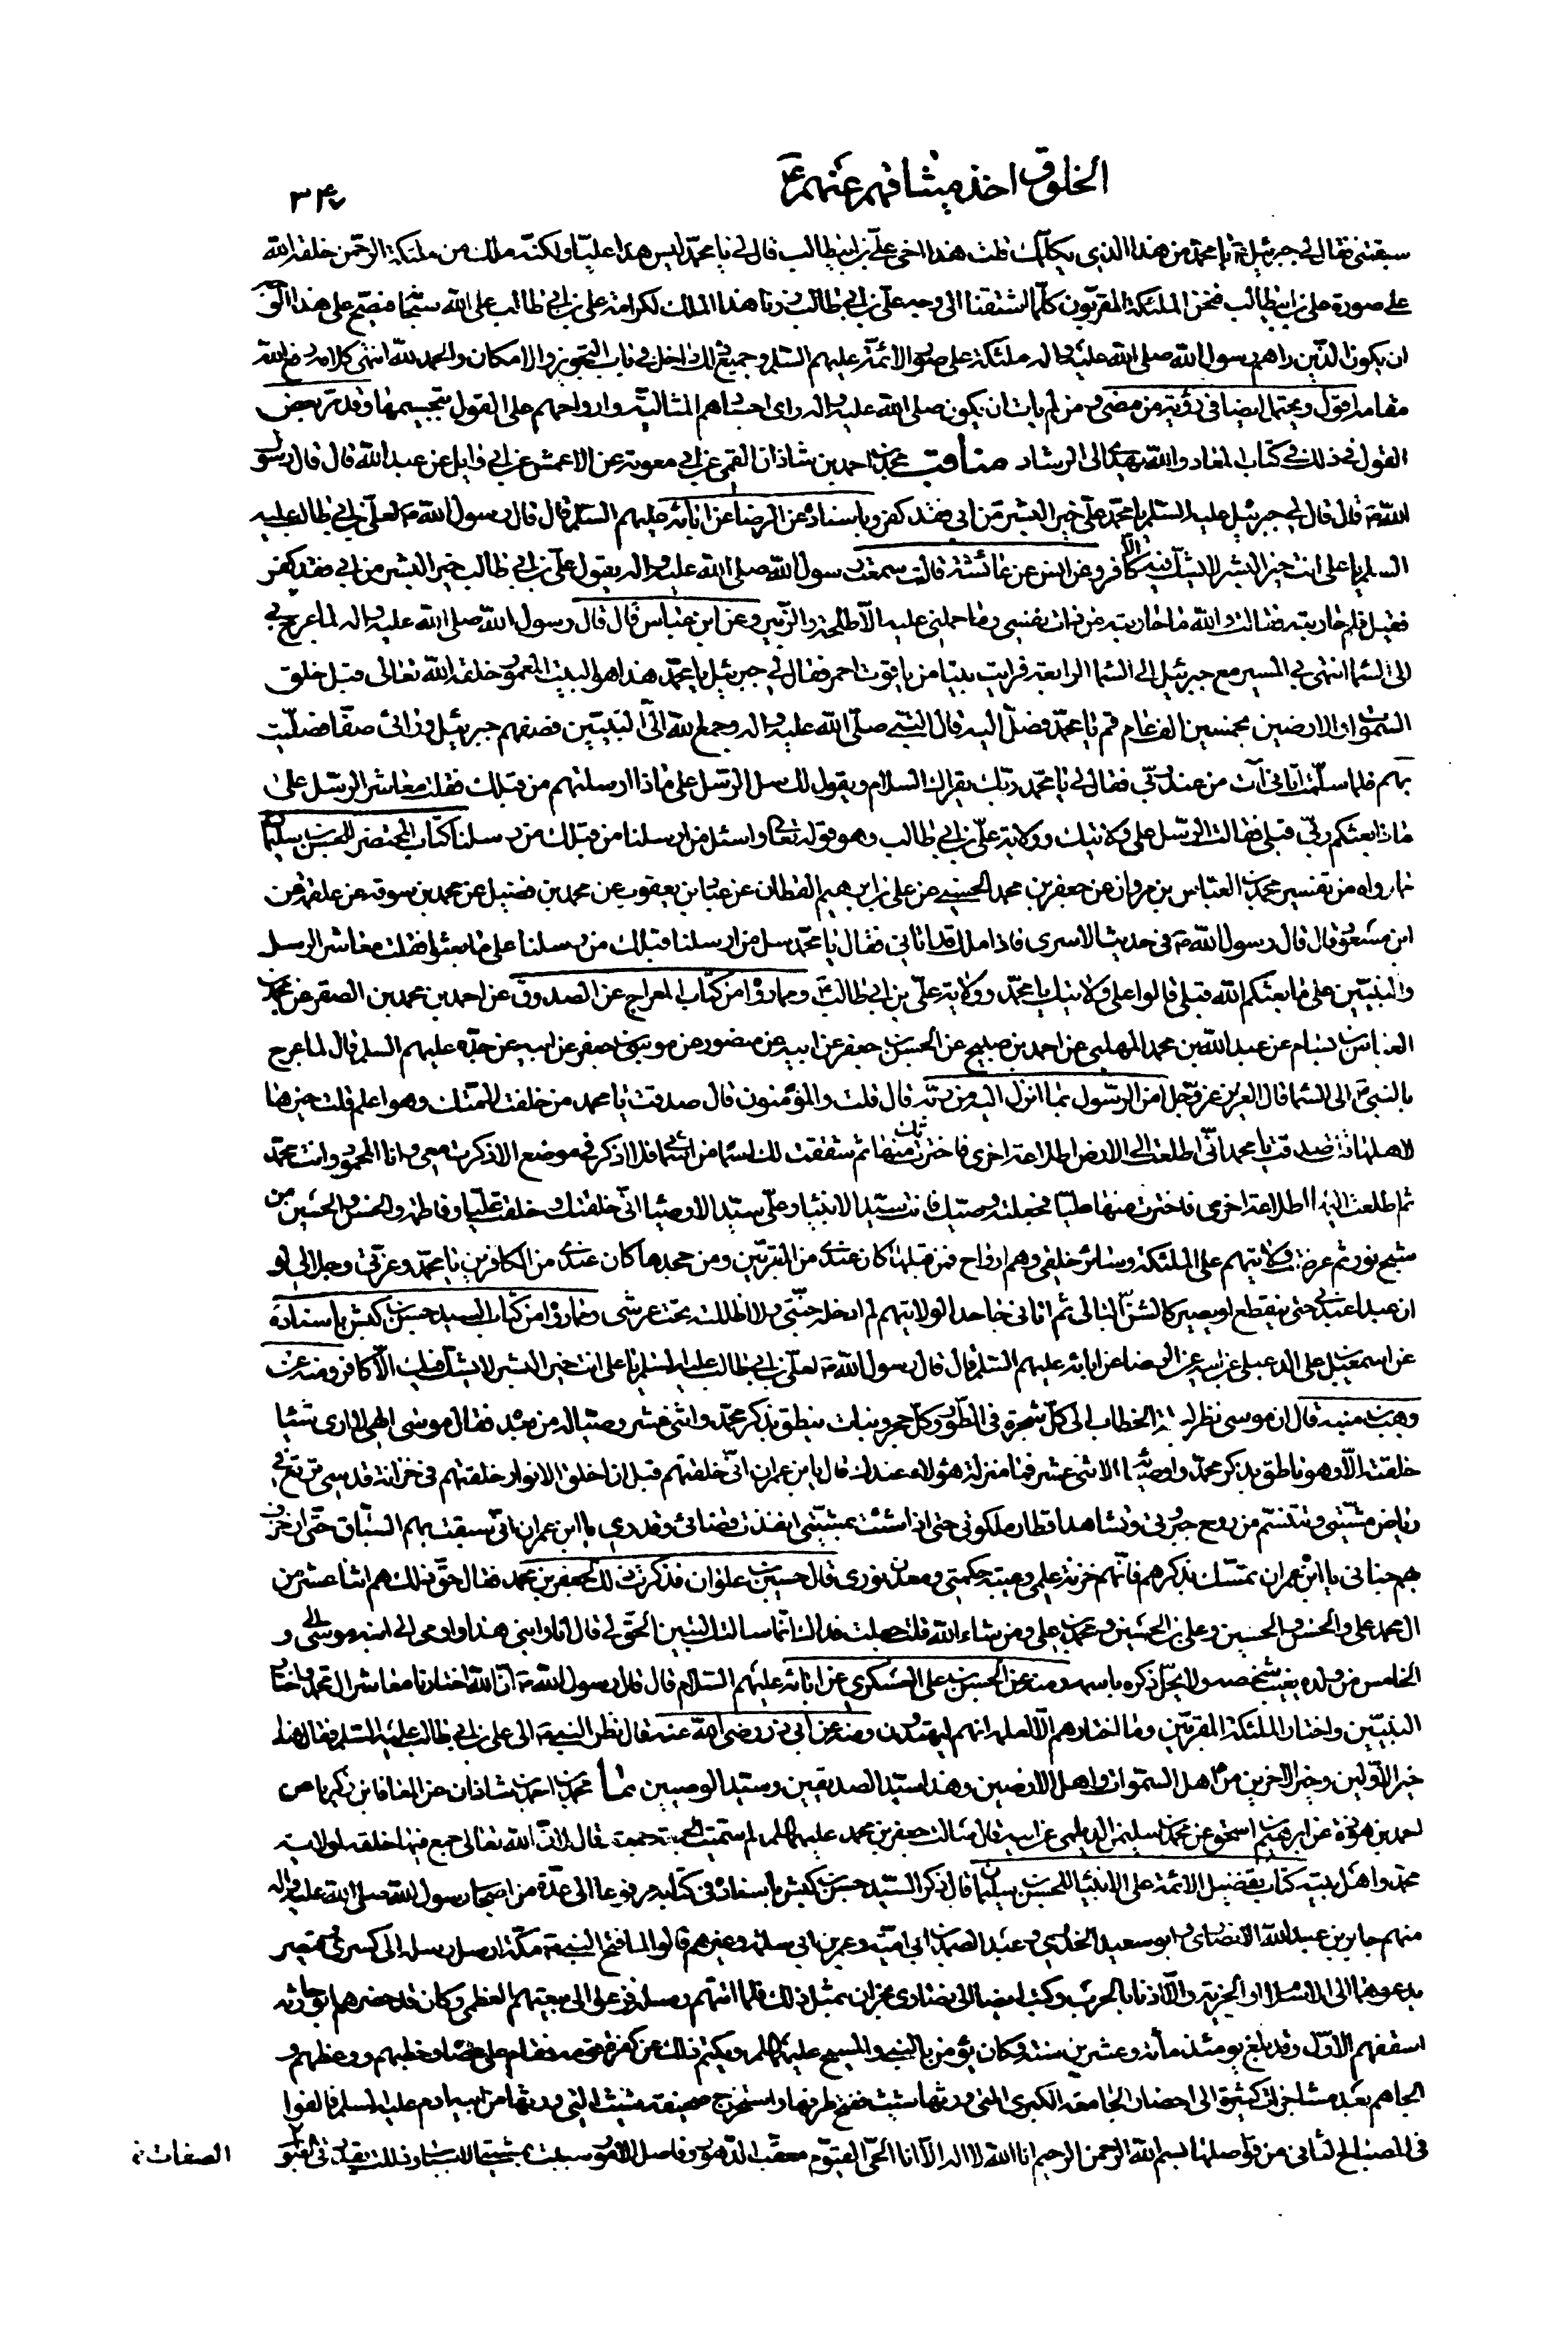 الخلوق اخذ ميثاقهم عنهم ع
٣٤٧
سبقتنى فقال لى جبرئيل يا محمد من هذا الذى يكلمك قلت هذا اخى على بن ابيطالب قال لى يا محمد ليس هذا عليا ولكنه ملك من ملئكة الرحمن خلقه الله
على صورة على بن ابيطالب فنحن الملئكة المقربون كلما اشتقنا الى وجه على بن ابى طالب زرنا هذا الملك لكرامة على بن ابى طالب على الله سبحانه فيصح على هذا الوجه
ان يكون الذين راهم رسول الله صلى الله عليه واله ملئكة على صور الائمة عليهم السلم وجميع ذلك داخل فى باب التجويز والامكان والحمد لله انتهى كلامه رفع الله
مقامه اقول ويحتمل ايضا فى رؤية من مضى ومن لم يات ان يكون صلى الله عليه واله راى اجسادهم المثالية وارواحهم على القول بتجسيمها وقد مر بعض
القول فى ذلك فى كتاب المعاد والله يهدى الى الرشاد مناقب محمد بن احمد بن شاذان القمى عن ابى معوية عن الاعمش عن ابى وايل عن عبد الله قال قال رسول
الله ص قال قال لى جبرئيل عليه السلم يا محمد على خير البشر من ابى فقد كفر وباسناده عن الرضا عن ابائه عليهم السلم قال قال رسول الله ص لعلى بن ابى طالب عليه
السلم يا على انت خير البشر لا يشك فيك الا كافر وعن انس عن عائشة قالت سمعت رسول الله صلى الله عليه واله يقول على بن ابى طالب خير البشر من ابى فقد كفر
فقيل فلم حاربتيه فقالت والله ما حاربته من ذات نفسى وما حملنى عليه الا طلحة والزبير وعن ابن عباس قال قال رسول الله صلى الله عليه واله لما عرج بى
الى السماء انتهى بى المسير مع جبرئيل الى السماء الرابعة فرايت بيتا من ياقوت احمر فقال لى جبرئيل يا محمد هذا هو البيت المعمور خلقه الله تعالى قبل خلق
السموات والارضين بخمسين الف عام قم يا محمد فصل اليه قال النبى صلى الله عليه واله وجمع الله الى النبيين فصفهم جبرئيل ورائى صفا فصليت
بهم فلما سلمت اتانى آت من عند ربى فقال لى يا محمد ربك يقرئك السلام ويقول لك سل الرسل على ماذا ارسلتهم من قبلك فقلت معاشر الرسل على
ماذا بعثكم ربى قبلى فقالت الرسل على ولايتك وولاية على بن ابى طالب وهو قوله تعالى واسئل من ارسلنا من قبلك من رسلنا كتاب المحتضر للحسن بن سليمان
مما رواه من تفسير محمد بن العباس بن مروان عن جعفر بن محمد الحسينى عن على بن ابرهيم القطان عن عباد بن يعقوب عن محمد بن فضيل عن محمد بن سوقة عن علقمة عن
ابن مسعود قال قال رسول الله ص فى حديث الاسرى فاذا ملك قد اتانى فقال يا محمد سل من ارسلنا قبلك من رسلنا على ما بعثوا فقلت معاشر الرسل
والنبيين على ما بعثكم الله قبلى قالوا على ولايتك يا محمد وولاية على بن ابى طالب ومما رواه من كتاب المعراج عن الصدوق عن احمد بن محمد بن الصقر عن محمد بن
العباس بن بسام عن عبد الله بن محمد المهلبى عن احمد بن صبيح عن الحسن بن جعفر عن ابيه عن منصور عن موسى بن جعفر عن ابيه عن جده عليهم السلم قال لما عرج
بالنبى ص الى السماء قال العزيز عز وجل امن الرسول بما انزل اليه من ربه قال قلت والمؤمنون قال صدقت يا محمد من خلفت لامتك وهو اعلم قلت خيرها
لاهلها قال صدقت يا محمد انى اطلعت الى الارض اطلاعة اخرى فاخترتك منها ثم شققت لك اسما من اسمائى فلا اذكر فى موضع الا ذكرت معى وانا المحمود وانت محمد
ثم اطلعت اليها اطلاعة اخرى فاخترت منها عليا فجعلته وصيك فانت سيد الانبياء وعلى سيد الاوصياء انى خلقتك وخلقت عليا وفاطمة والحسن والحسين من
شبح نور ثم عرضت ولايتهم على الملئكة وسائر خلقى وهم ارواح فمن قبلها كان عندى من المقربين ومن جحدها كان عندى من الكافرين يا محمد وعزتى وجلالى لو
ان عبدا عبدنى حتى ينقطع او يصير كالشن البالى ثم اتانى جاحدا لولايتهم لم ادخله جنتى ولا اظللته تحت عرشى ومما رواه من كتاب السيد حسن بن كبش باسناده
عن اسمعيل بن على الدعبلى عن ابيه عن الرضا عن ابائه عليهم السلم قال قال رسول الله ص لعلى بن ابى طالب عليه السلم يا على انت خير البشر لا يشك فيك الا كافر ومنه عن
وهب بن منبه قال ان موسى نظر ليلة الخطاب الى كل شجرة فى الطور وكل حجر ونبات ينطق بذكر محمد واثنى عشر وصيا له من بعده فقال موسى الهى لا ارى شيئا
خلقته الا وهو ناطق بذكر محمد واوصيائه الاثنى عشر فما منزلة هؤلاء عندك قال يا بن عمران انى خلقتهم قبل ان اخلق الانوار خلقتهم فى خزانة قدسى ترتع فى
رياض مشيتى وتتنسم من روح جبروتى وتشاهد اقطار ملكوتى حتى اذا شئت بمشيتى انفذت قضائى وقدرى يا ابن عمران انى سبقت بهم السباق حتى ازخرف
بهم جنانى يا ابن عمران تمسك بذكرهم فانهم خزنة علمى وعيبة حكمتى ومعدن نورى قال حسين بن علوان فذكرت ذلك لجعفر بن محمد فقال حق ذلك هم اثنا عشر من
ال محمد على والحسن والحسين وعلى بن الحسين ومحمد بن على ومن شاء الله قلت جعلت فداك انما سالتك لتبين الحق لى قال انا وابنى هذا واومى الى ابنه موسى و
الخامس من ولده يغيب شخصه ولا يحل ذكره باسمه ومنه عن الحسن بن على العسكرى عن ابائه عليهم السلام قال قال رسول الله ص ان الله اختارنا معاشر ال محمد واختار
النبيين واختار الملئكة المقربين وما اختارهم الا لعلمه انهم ومنه عن ابى ذر رضى الله عنه قال نظر النبى ص الى على بن ابى طالب عليه السلم فقال هذا
خير الاولين وخير الاخرين من اهل السموات واهل الارضين وهذا سيد الصديقين وسيد الوصيين محمد بن احمد بن شاذان عن المعافا بن زكريا عن
احمد بن هوذة عن ابرهيم بن اسحق عن محمد بن سليمن الديلمى عن ابيه قال سالت جعفر بن محمد عليهما السلم لم سميت الجمعة جمعة قال لان الله تعالى جمع فيها خلقه لولاية
محمد واهل بيته كتاب تفضيل الائمة على الانبياء للحسن بن سليمان قال ذكر السيد حسن بن كبش باسناده فى كتابه مرفوعا الى عدة من اصحاب رسول الله صلى الله عليه واله
منهم جابر بن عبد الله الانصارى وابو سعيد الخدرى وعبد الصمد بن ابى امية وعمر بن ابى سلمة وغيرهم قالوا لما فتح النبى ص مكة ارسل رسله الى كسرى وقيصر
يدعوهما الى الاسلام او الجزية والا اذنا بالحرب وكتب ايضا الى نصارى نجران بمثل ذلك فلما اتتهم رسله فزعوا الى بيعتهم العظمى وكان قد حضرهم ابو حارثة
اسقفهم الاول وقد بلغ يومئذ مائة وعشرين سنة وكان يؤمن بالنبى والمسيح عليهما السلم ويكتم ذلك عن كفرة قومه فقام على عصاه وخطبهم ووعظهم و
الجاهم بعد مشاجرات كثيرة الى احضار الجامعة الكبرى التى ورثها شيث ففتح طرفها واستخرج صحيفة شيث التى ورثها من ابيه ادم عليه السلم فالفوا
فى المصباح الثانى من فواصلها بسم الله الرحمن الرحيم انا الله لا اله الا انا الحى القيوم معقب الدهور وفاصل الامور سببت بمشيتى الاسباب وذللت بقدرتى
الصفات